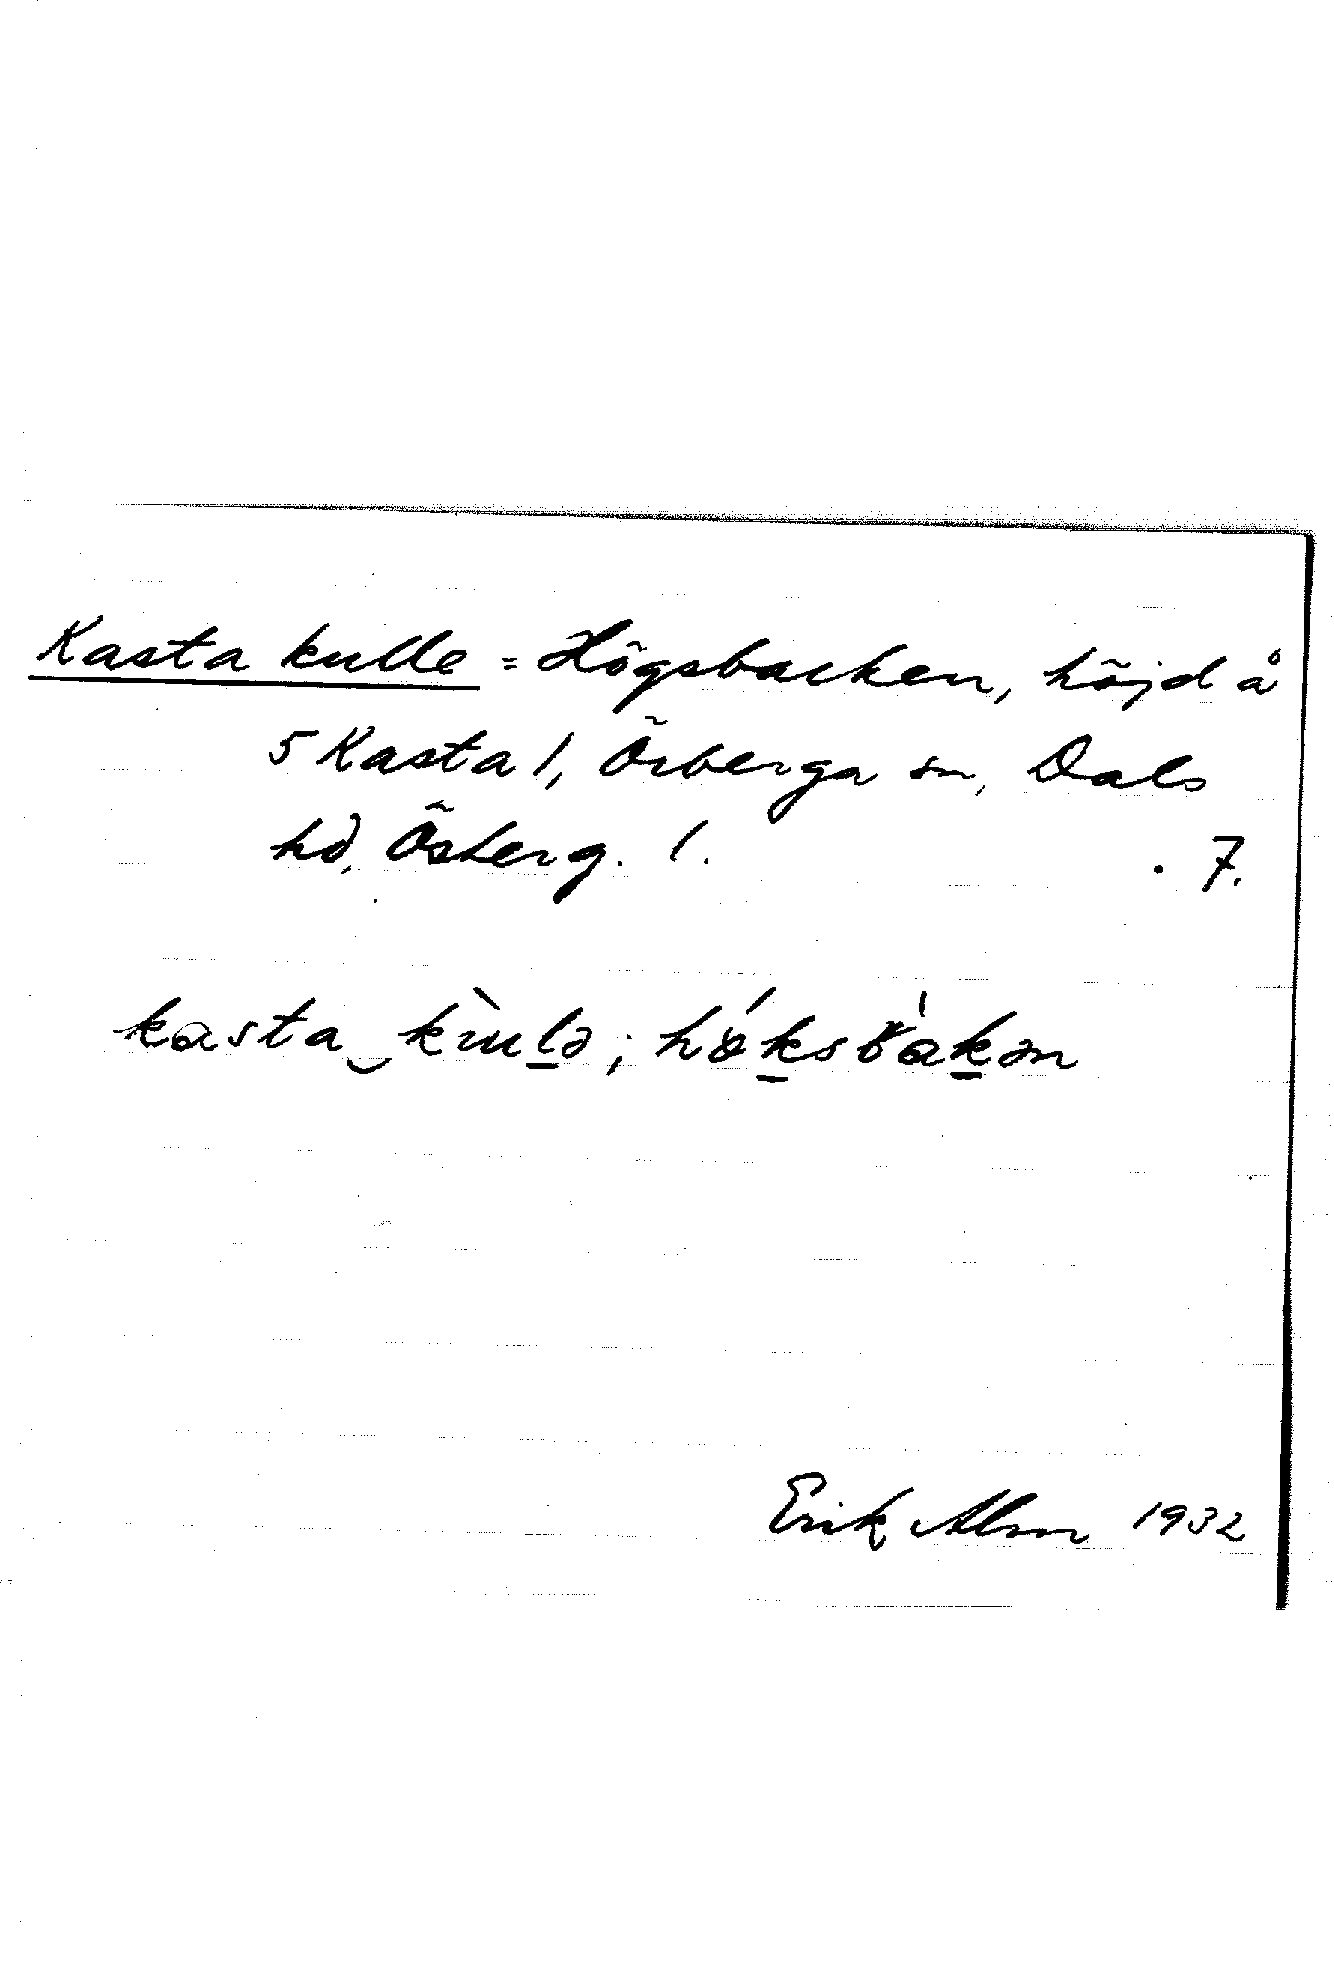 Kasta kulle = Högsbacken, höjd å
5 Kasta 1, Örberga sn, Dals
hd, Österg. l. . 7.
kasta kulə; høksbakən
Erik Alm 1932